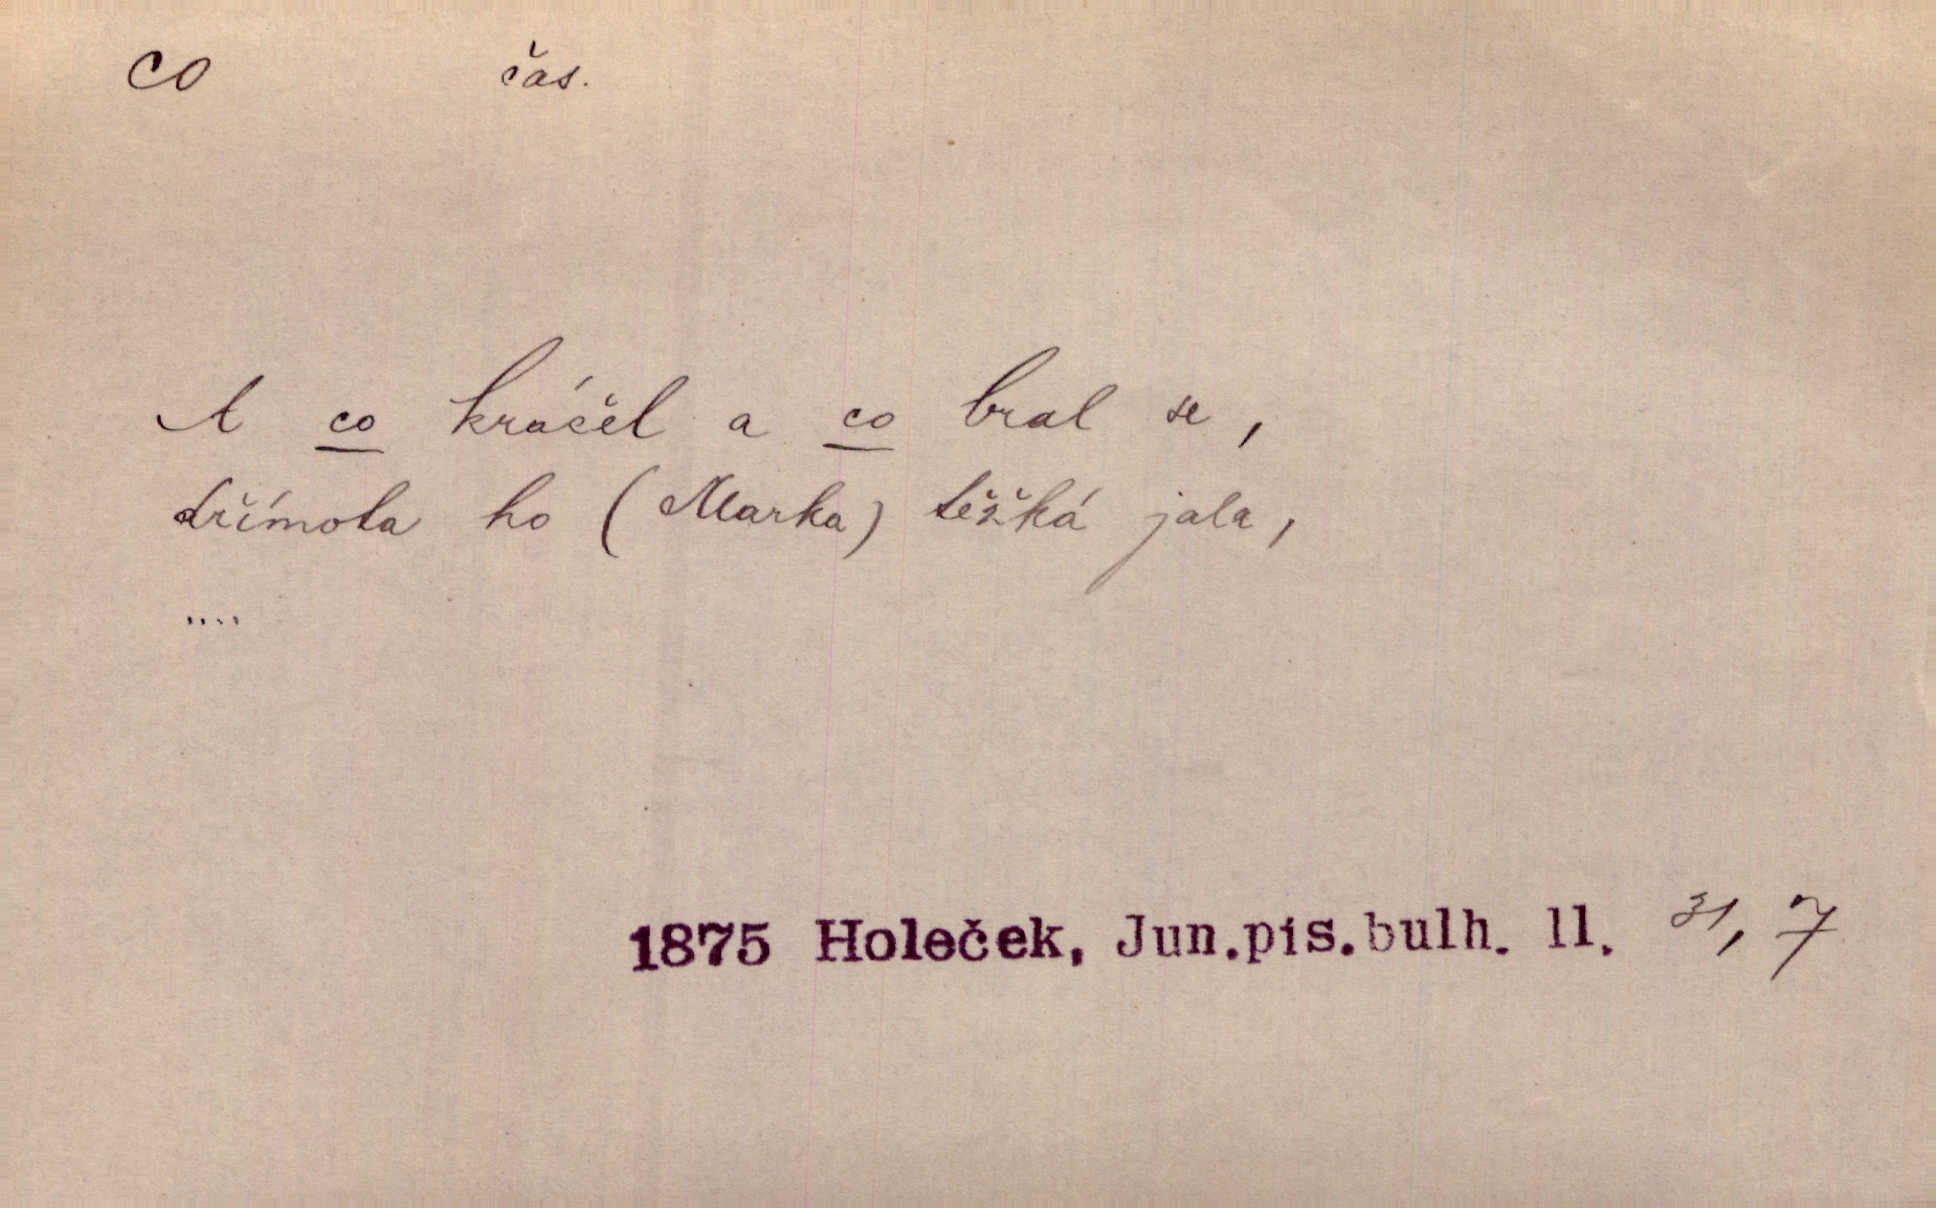 co čas.
A co kráčel a co bral se,
dřímota ho (Marka) těžká jala,
....
1875 Holeček, Jun.pis.bulh. ll. 31, 7